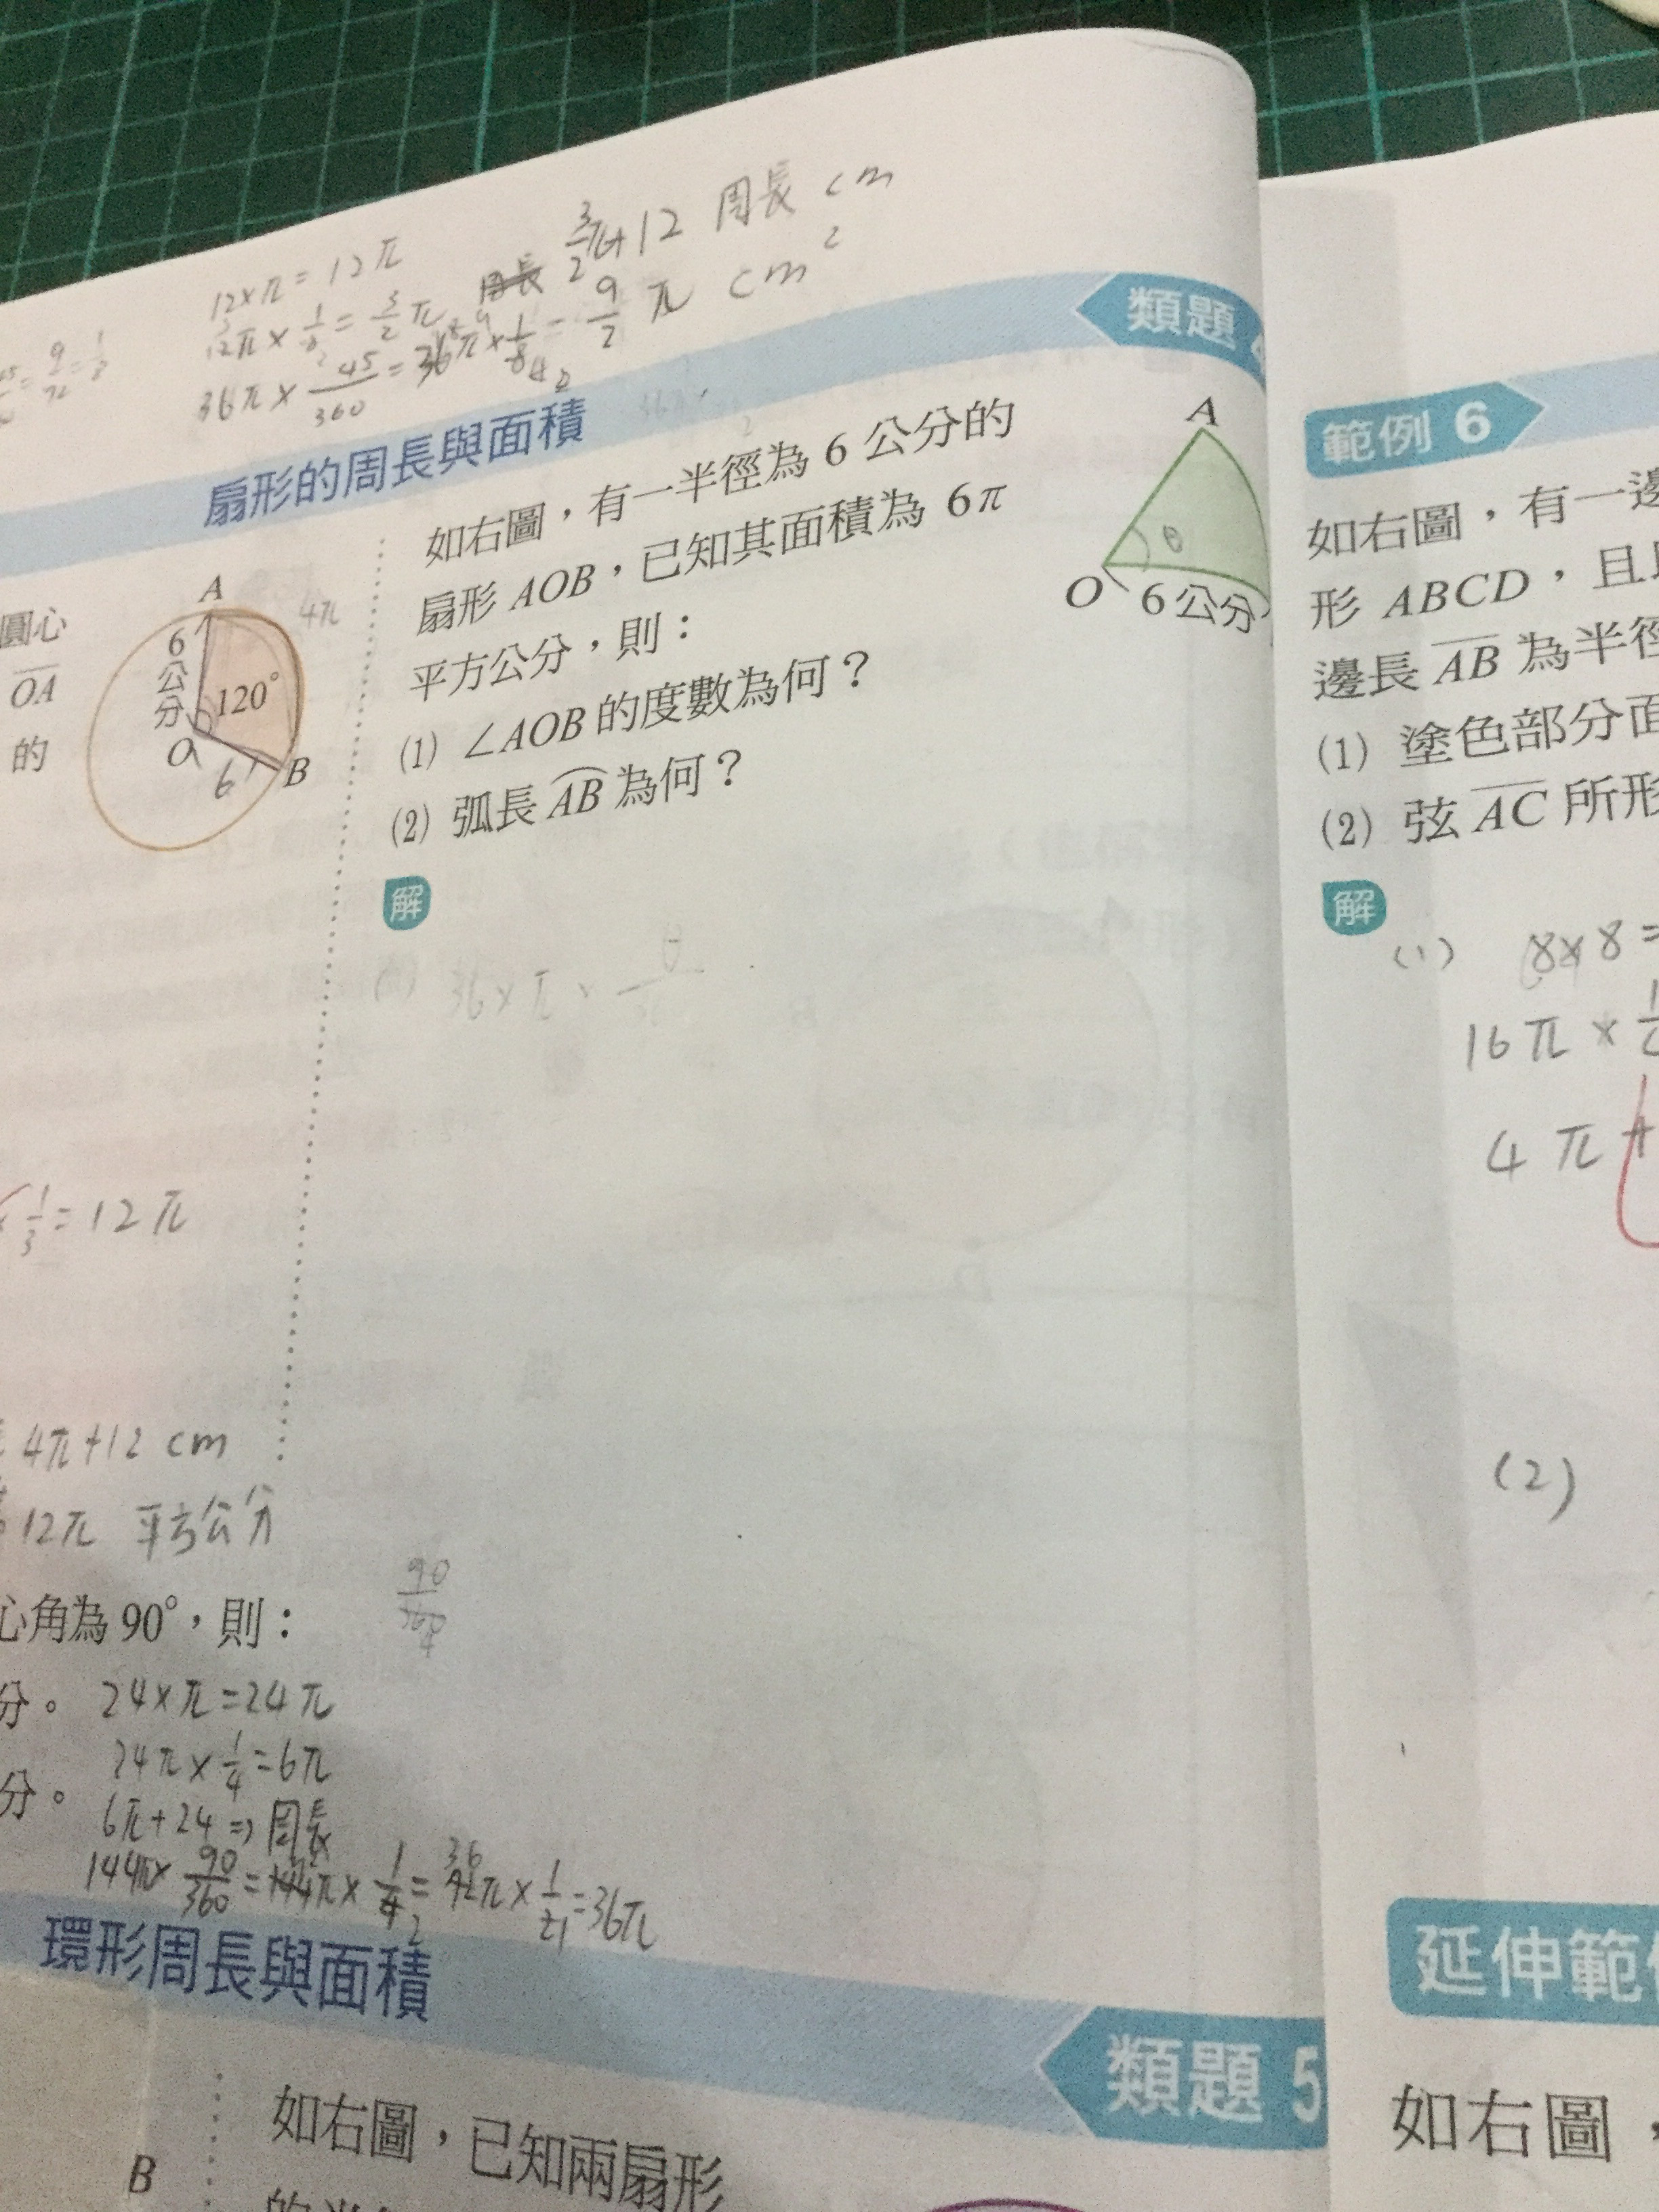 12×π=12π
12π×1/8=3/2π
3/2π+12 周長 cm
36π×45/360=36π×1/8=9/2π cm²
類題 4
扇形的周長與面積
圓心
OA
的
A
6公分
120°
O
6
B
4π
如右圖，有一半徑為 6 公分的
扇形 AOB，已知其面積為 6π
平方公分，則：
(1) ∠AOB 的度數為何？
(2) 弧長 AB 為何？
A
θ
O
6公分
解
36×π×θ
1/3=12π
4π+12 cm
12π 平方公分
心角為 90°，則：
90/360
4
分。 24×π=24π
24π×1/4=6π
分。
6π+24⇒周長
144π×90/360
=36π
環形周長與面積
類題 5
如右圖，已知兩扇形
B
範例 6
如右圖，有一邊
形 ABCD，且
邊長 AB 為半徑
(1) 塗色部分面
(2) 弦 AC 所形
解
(1) 8×8=
16π×
4π+
(2)
延伸範
如右圖，